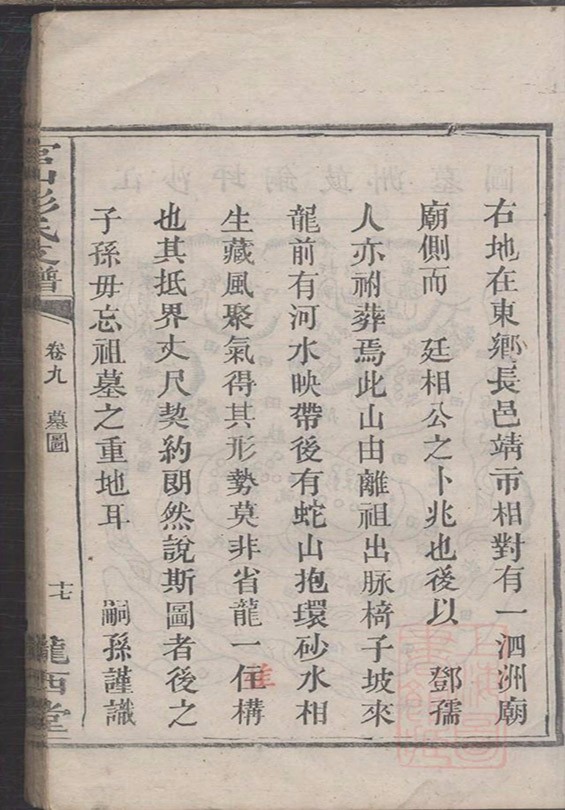 右地在東鄉長邑靖市相對有一泗洲廟
廟側而 廷相公之卜兆也後以 鄧孺
人亦祔葬焉此山由離祖出脉椅子坡來
龍前有河水映帶後有蛇山抱環砂水相
生藏風聚氣得其形勢莫非省龍一
構
也其抵界丈尺契約朗然說斯圖者後之
子孫毋忘祖墓之重地耳 嗣孫謹識
氏支譜
卷九 墓圖
十七
隴西堂